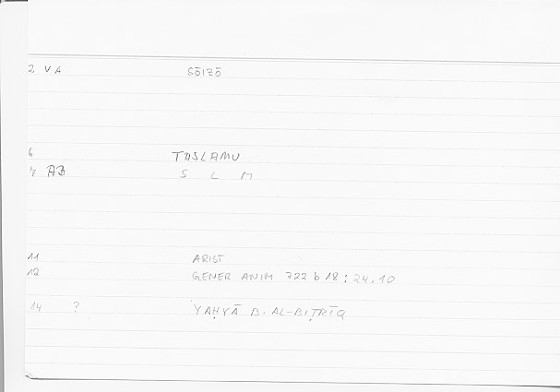 2 VA SŌIZŌ
6 TUSLAMU
7 AB S L M
11 ARIST
12 GENER ANIM 722 b 18 : 24.10
14 ? YAḤYĀ B. AL-BIṬRĪQ